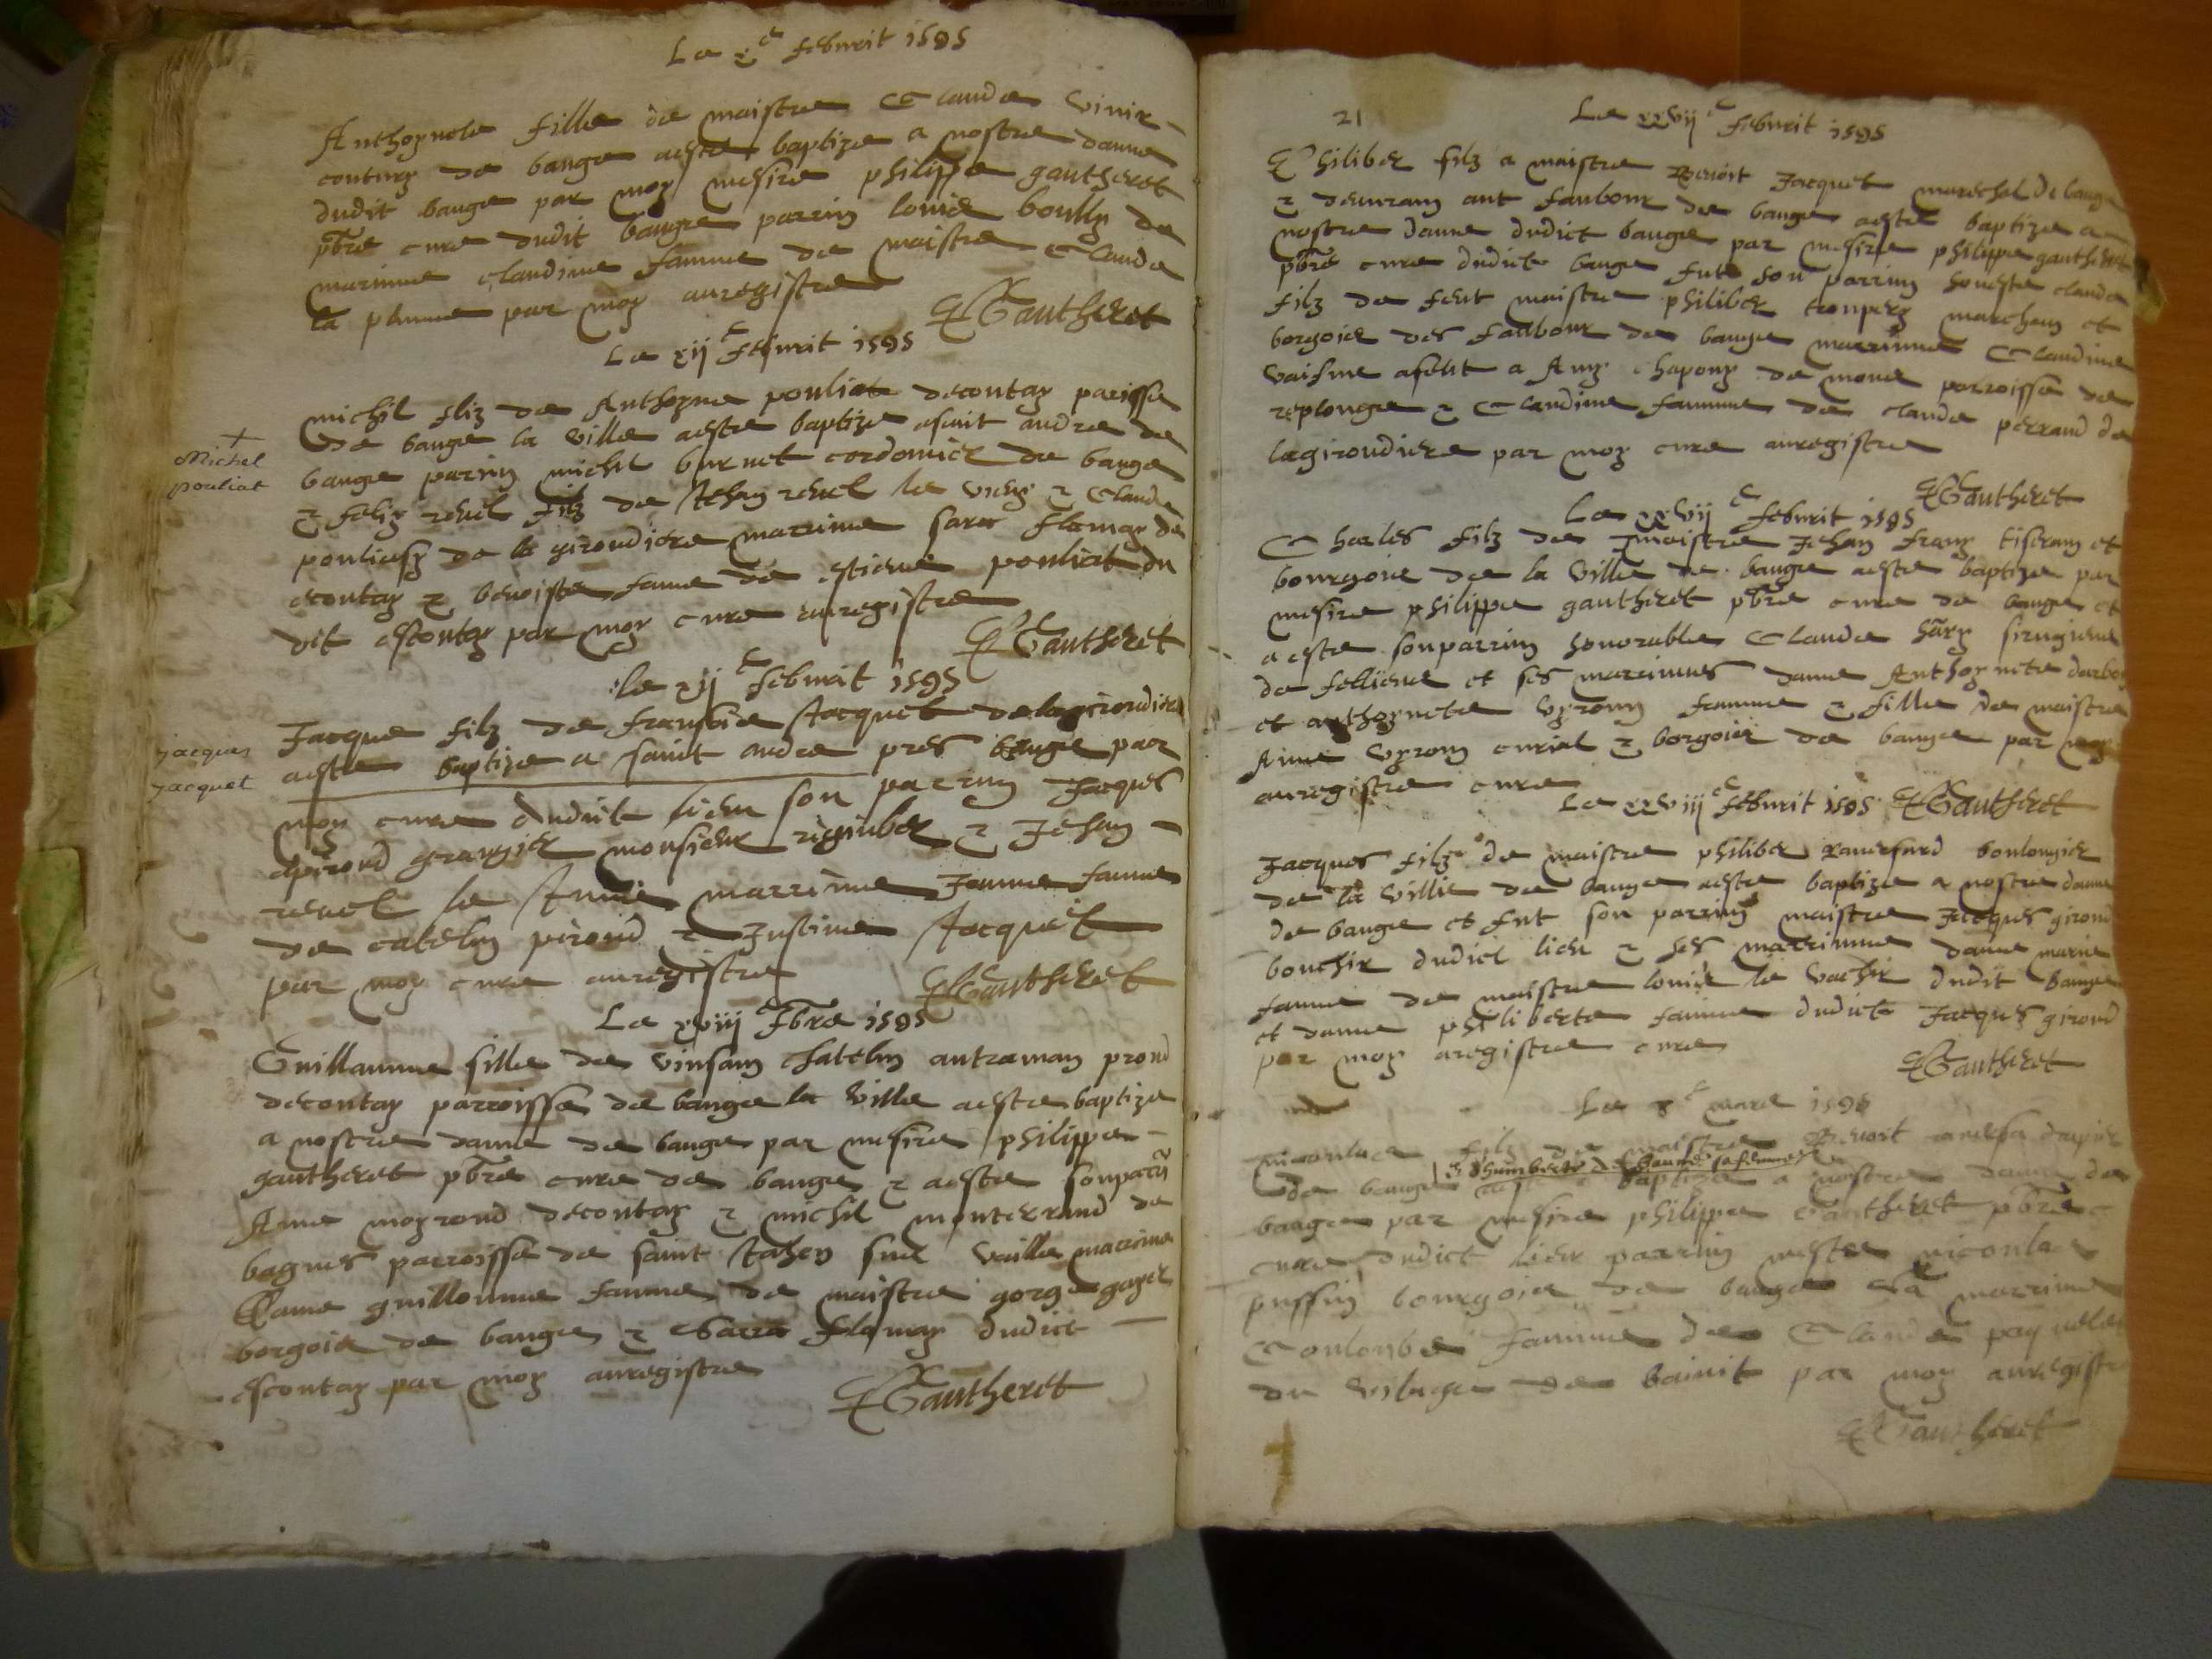 Le x.e febvrit 1595
Anthoynete fille de maistre Claude Vinir
couturg de bauge aeste baptize a nostre damme
dudit bauge par moy mesire philippe gautheret
pbre cure dudit bauge parrin louis boully de
marinne claudine famme de maistre Claude
la par moy auregistre
PGautheret
Le xij e febvrit 1595
michil filz de Anthoyne pouliat descontay parisse
de bauge la ville aestre baptize asaint andre de
bauge parrin michil burnet cordonnier de bauge
Michel
pouliat
& felix revel filz de Jehan revel le vieux & Claude
de la girondiere marrinne sara flamay de
econtay & benoiste famme de estienne pouliat du
dit escontay par moy cure auregistre
PGautheret
le xij e febvrit 1595
Jacque filz de Jacquet de la girondiere
jacques
jacquet
aeste baptize a saint andre pres bauge par
moy cure dudict lieu son parrin Jacques
grangier monsieur & Jehan
revel le marrinne Janne famme
de catelin pirond & Justine Jacquet
par moy cure auregistre
PGautheret
Le xviij e fbre 1595
Guillaumme fille de vinsam Catelin autraman
descontay parroisse de bauge la ville aestre baptize
a nostre damme de bauge par mesire philippe
gautheret pbre cure de bauge & aeste son parrin
Anne moyrond descontay & michil monterrand de
bagnes parroisse de saint Jahen sur vaille marrinne
Dame guillomme famme de maistre gorge gayet
borgois de bauge & Sarra flamay dudict
escontay par moy auregistre
PGautheret
21
Le xxvij e febvrit 1595
Philiber filz a maistre Benoit Jacquet marechal de bauge
& demurany aut faubour de bauge aeste baptize a
nostre damme dudict bauge par mesire philippe gautheret
pbre cure dudict bauge fut son parrin honeste claude
filz de feut maistre philiber marchang et
borgois des faubour de bauge marrinne Claudine
vaisine a Any chapony de mone parroisse de
replonge & Claudine famme de claude perrand de
lagirondiere par moy cure auregistre
PGautheret
Le xxvij e febvrit 1595
Charles filz de maistre Jehan frang tiseram et
bourgois de la ville de bauge aeste baptize par
mesire philippe gautheret pbre cure de bauge et
a este son parrin honorable Claude
de et ses marrinnes damme Anthoynete
et anthoynete famme & fille de maistre
Aime curial & borgois de bauge par moy
auregistre cure
Le xxviij e febvrit 1595 PGautheret
Jacques filz de maistre philiber boulongier
de la ville de bauge aeste baptize a nostre damme
de bauge et fut son parrin maistre Jacques girond
bouchir dudict lieu & ses marrinne damme marie
famme de maistre louis le vachir dudit bauge
et damme philiberte famme dudict Jacques girond
par moy aregistre cure
PGautheret
Le e mars 1595
nicoulas filz de maistre Benoit
& humberte de sa femme
de bauge aeste baptize a nostre damme de
bauge par mesire philippe Gautheret pbre
cure dudict lieu parrin nicoulas
pussin bourgois de bauge sa marrinne
Coulombe famme de Claude
du vilage de par moy auregistre
PGautheret